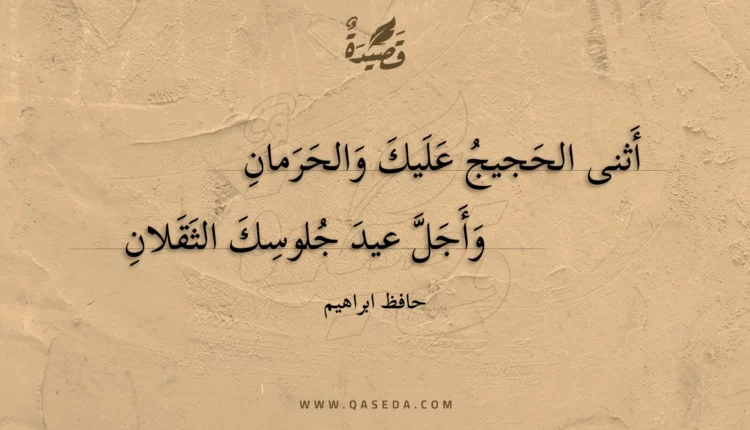 قَصِيْدَةٌ
أَثنى الحَجيجُ عَلَيكَ وَالحَرَمانِ
وَأَجَلَّ عيدَ جُلوسِكَ الثَقَلانِ
حافظ ابراهيم
WWW.QASEDA.COM